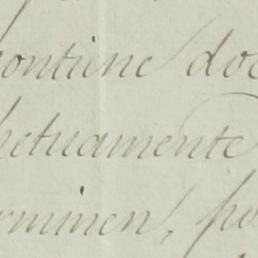 contiene doc
petuamente
rminen, po